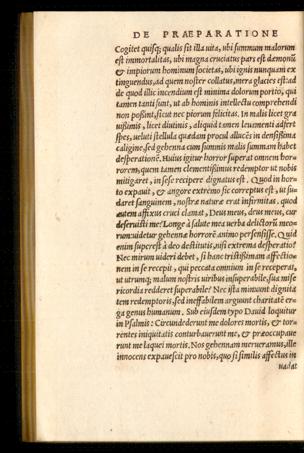 DE PRAEPARATIONE
Cogitet quisq; qualis sit illa uita, ubi summum malorum
est immortalitas, ubi magna cruciatus pars est dæmonũ
& impiorum hominum societas, ubi ignis nunquam ex
tinguendus, ad quem noster collatus, mera glacies est: ad
de quod illic incendium est minima dolorum portio, qui
tamen tanti sunt, ut ab hominis intellectu comprehendi
non poßint, sicut nec piorum felicitas. In malis licet gra
uißimis, licet diutinis, aliquid tamen leuamenti adfert
spes, ueluti stellula quædam procul allucẽs in densißima
caligine, sed gehenna cum summis malis summam habet
desperationẽ. Huius igitur horror superat omnem hor-
rorem, quem tamen clementißimus redemptor ut nobis
mitigaret, in sese recipere dignatus est. Quod in hor-
to expauit, & angore extremo sic correptus est, ut su-
daret sanguinem, nostræ naturæ erat infirmitas. quod
autem affixus cruci clamat, Deus meus, deus meus, cur
deseruisti me? Longe à salute mea uerba delictorũ meo-
rum: uidetur gehennæ horrorẽ animo persensisse. Quid
enim superest à deo destitutis, nisi extrema desperatio?
Nec mirum uideri debet, si hanc tristißimam affectio-
nem in se recepit, qui peccata omnium in se receperat,
ut utrunq; malum nostris uiribus insuperabile, sua mise
ricordia redderet superabile? Nec ista minuunt dignita
tem redemptoris, sed ineffabilem arguunt charitatẽ er-
ga genus humanum. Sub eiusdem typo Dauid loquitur
in Psalmis: Circundederunt me dolores mortis, & tor-
rentes iniquitatis conturbauerunt me, & præoccupaue
runt me laquei mortis. Nos gehennam merueramus, ille
innocens expauescit pro nobis, quo si similis affectus in
uadat